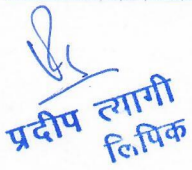 प्रदीप त्यागी
लिपिक